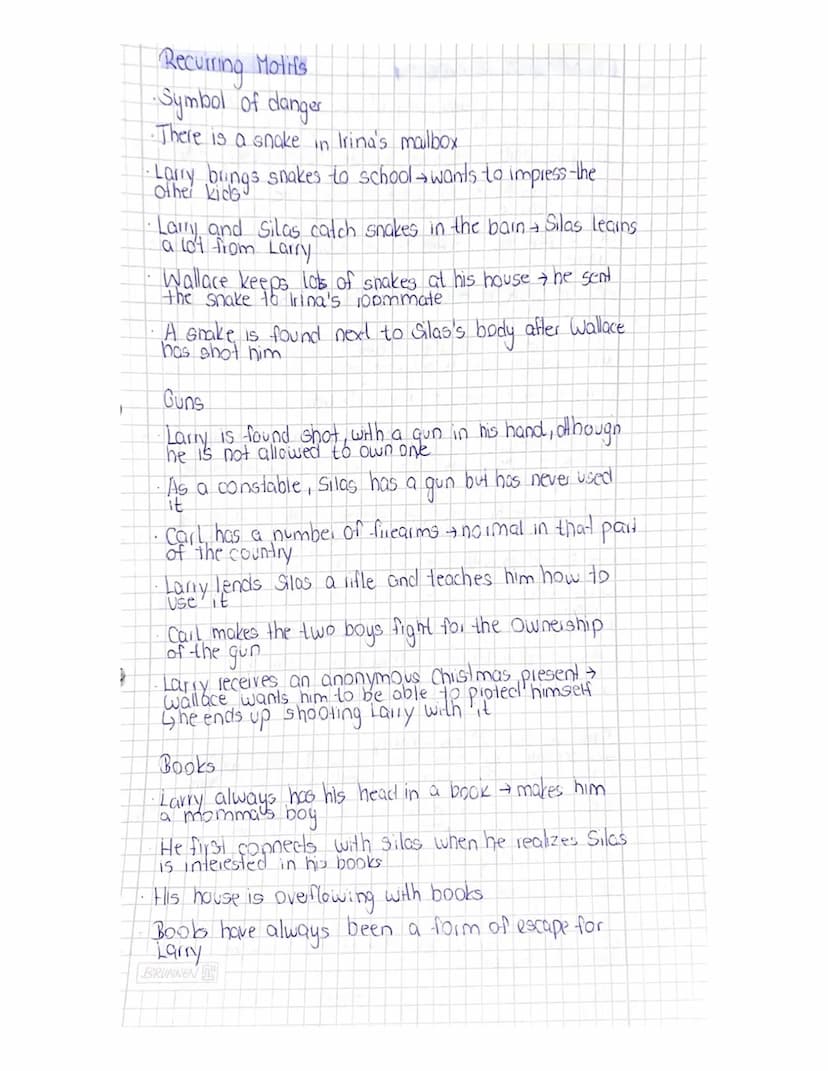 Recurring Motifs
· Symbol of danger
· There is a snake in Irina's mailbox
· Larry brings snakes to school → wants to impress the
other kids
· Larry and Silas catch snakes in the barn → Silas learns
a lot from Larry
· Wallace keeps lots of snakes at his house → he sent
the snake to Irina's roommate
· A snake is found next to Silas's body after Wallace
has shot him
Guns
· Larry is found shot, with a gun in his hand, although
he is not allowed to own one
· As a constable, Silas has a gun but has never used
it
· Carl has a number of firearms → normal in that part
of the country
· Larry lends Silas a rifle and teaches him how to
use it
· Carl makes the two boys fight for the ownership
of the gun
· Larry receives an anonymous Chistmas present →
Wallace wants him to be able to protect himself
↳ he ends up shooting Larry with it
Books
· Larry always has his head in a book → makes him
a momma's boy
· He first connects with Silas when he realizes Silas
is interested in his books
· His house is overflowing with books
· Books have always been a form of escape for
Larry
BRUNNEN